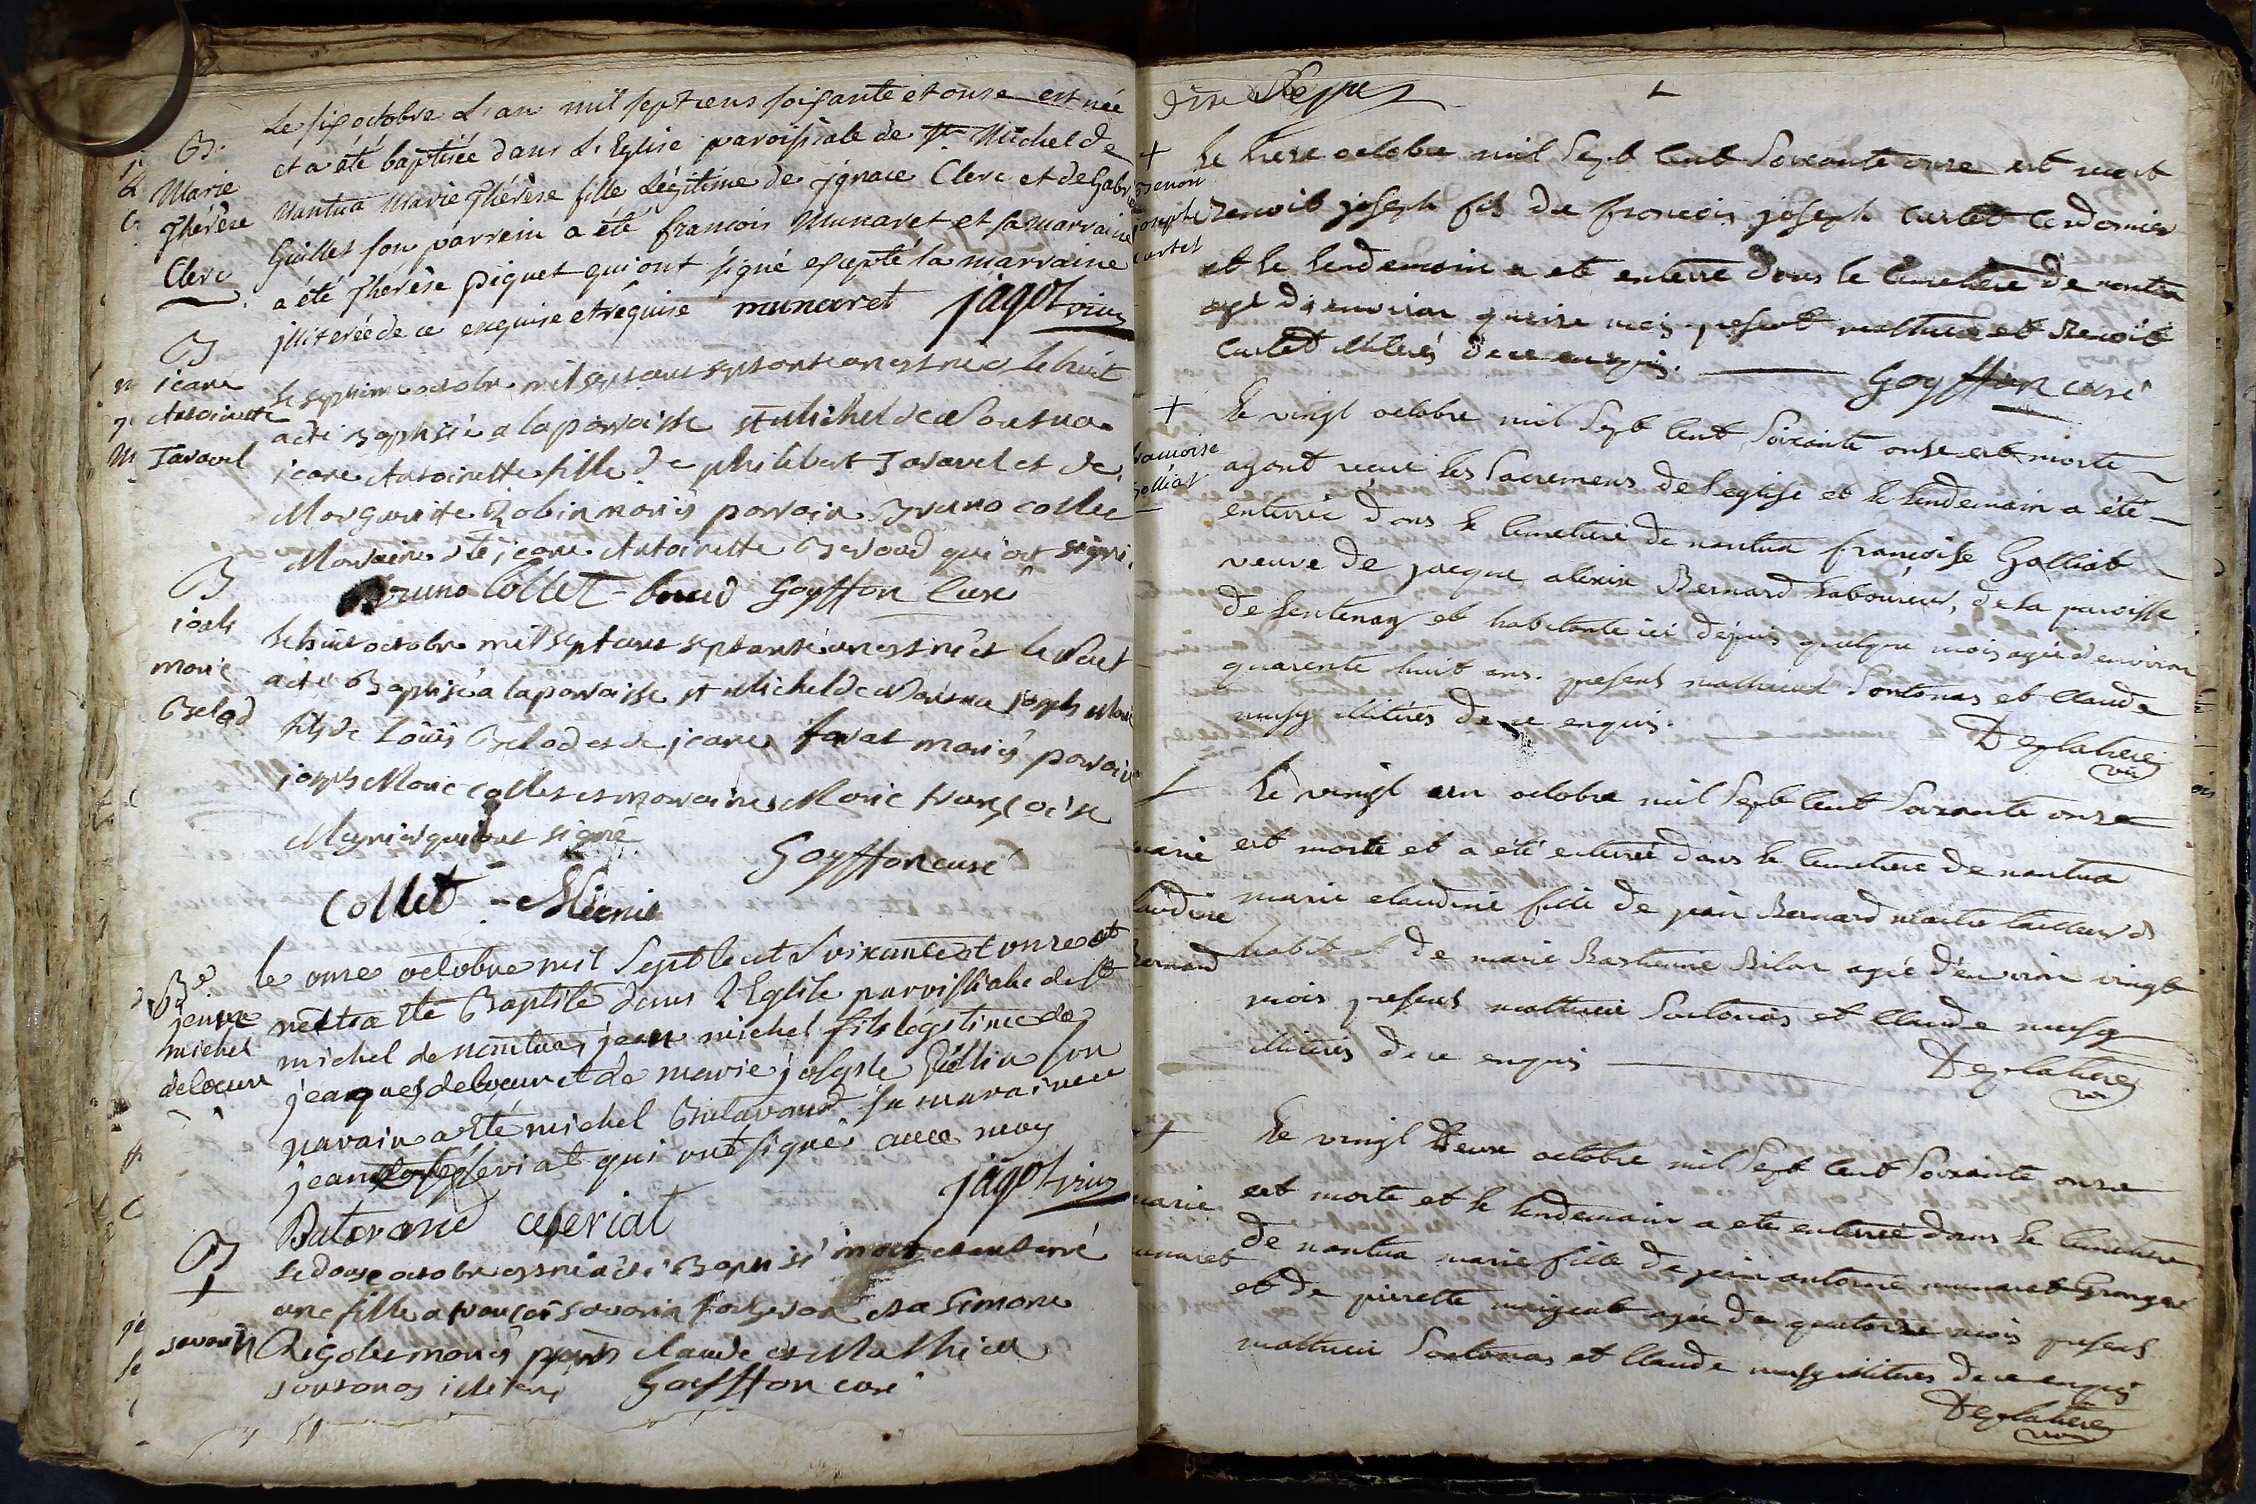 B.
Marie
Thérèse
Clerc
Le six octobre L'an mil sept cens soixante et onse est née
et a été baptisée dans L'Eglise paroissiale de St. Michel de
Nantua Marie Thérèse fille Légitime de jgnace Clerc et de Gabrie
Guillet son parrein a été francois Munaret et sa marraine
a été Thérèse Piguet qui ont signé excepté la marraine
jlliterée de ce enquise et réquise munaret jagot vic
B
jeane
Antoinette
Taravel
Le septieme octobre mil sept cent septante un est née et le huit
a eté Baptisée a la paroisse st Michel de Nantua
jeane Antoinette fille de philibert Taravel et de
Marguerite Robin mariés parrain Bruno collet
Marraine jeane Antoinette qui ont signé.
Bruno Collet Goyffon Curé
B
marie
Belod
Le huit octobre mil sept cent septante un est né et le
a eté Baptisé a la paroisse st Michel de Nantua joseph Marie
fils de Loüis Belod et de jeane mariés parrain
joseph Marie collet et marraine Marie françoise
qui ont signé
Goyffon curé
Collet
B
michel
delocur
le onze octobre mil Sept Cent Soixante et onze est
né et a eté Baptisé dans L'Eglise parroissiale de st
michel de nantua, jean michel fils légitime de
jeaques et de marie son
parain a eté michel sa maraine
jeane qui ont signé avec moy
jagot vic
B
+
savarin
Le doüse octobre est né a été Baptisé mort et enterré
une fille a françois savarin et a Simone
mariés claude et Mathieu
Goyffon curé
+
Le octobre mil Sept Cent Soixante onze est mort
Benoit joseph fils de françois joseph Curtet Cordonier
et le lendemain a eté enterré dans le Cimetiere de nantua
agé d'environ quinze mois presents mathieu et Benoit
Curtet illiterés de ce enquis.
Goyffon curé
+
Golliat
Le vingt octobre mil Sept Cent Soixante onze est morte
ayant reçue les Sacremens de l'eglise et le lendemain a été
enterrée dans le Cimetiere de nantua françoise Golliat
veuve de jacque Bernard Laboureur, de la paroisse
de Lentenay et habitante ici dépuis quelque mois agée d'environ
quarente huit ans. presents mathieu Sontonas et Claude
musy illiterés de ce enquis.
Deglatiere
vic
+
Bernard
Le vingt un octobre mil Sept Cent Soixante onze
est morte et a été enterrée dans le Cimetiere de nantua
marie claudine fille de jean Bernard maitre tailleur d
habit et de marie Bastienne Bilon agée d'environ vingt
mois presents mathieu Sontonas et Claude musy
illiterés de ce enquis
Deglatiere
vic
+
Le vingt Deux octobre mil Sept Cent Soixante onze
est morte et le lendemain a eté enterrée dans le Cimetiere
de nantua marie fille de jean antoine munaret Granger
et de pierrette agée de quatorze mois presents
mathieu Sontonas et Claude musy illiterés de ce enquis
Deglatiere
vic